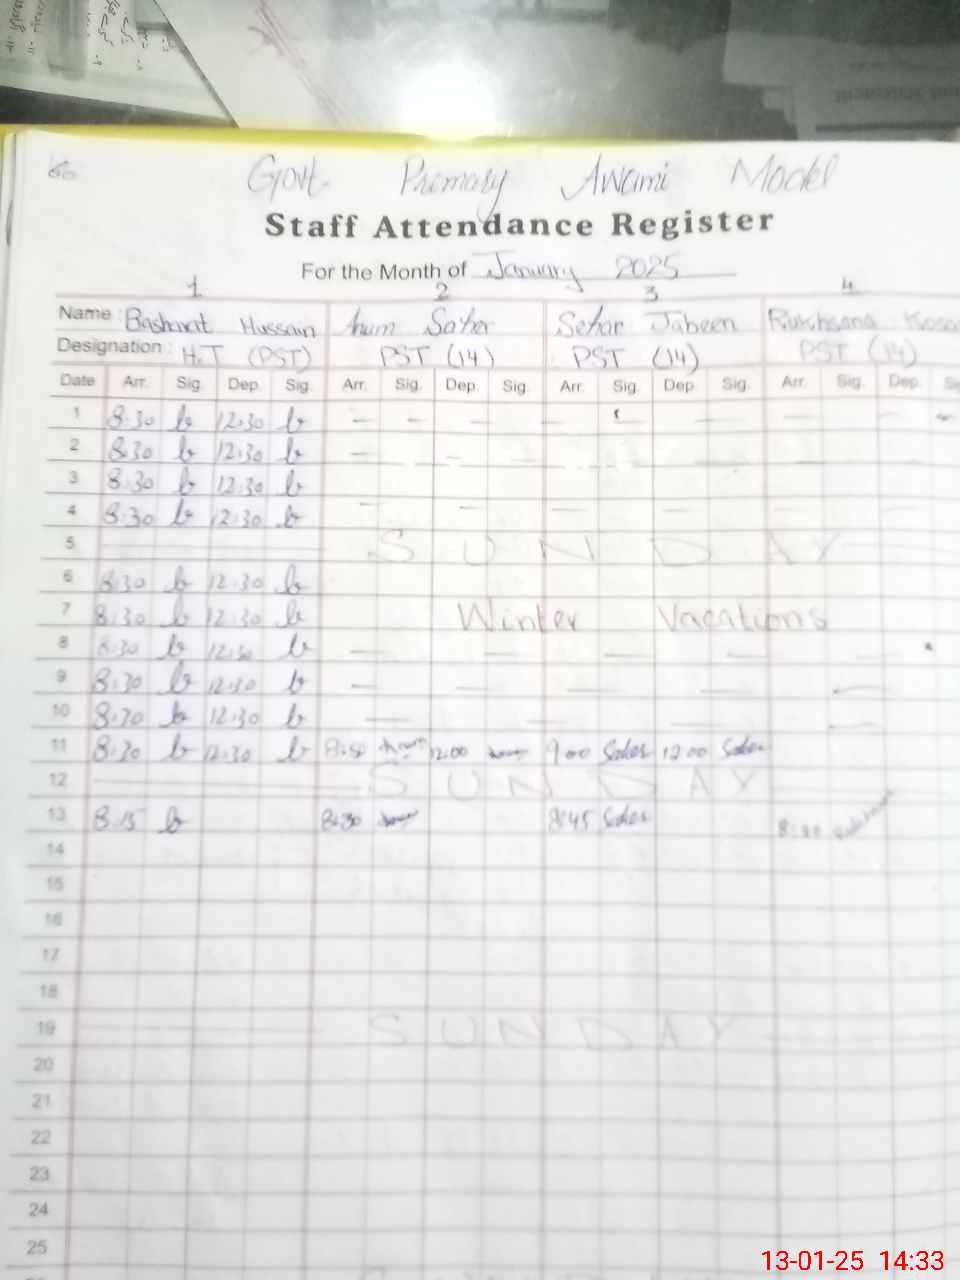 60
Govt. Primary Awami Model
Staff Attendance Register
For the Month of January 2025
1 2 3 4
Name : Basharat Hussain Anum Saher Sehar Jabeen Rukhsana
Designation : H.T (PST) PST (14) PST (14) PST (14)
Date Arr. Sig. Dep. Sig. Arr. Sig. Dep. Sig. Arr. Sig. Dep. Sig. Arr. Sig. Dep.
1 8:30 b 12:30 b — — — — — — —
2 8:30 b 12:30 b — — —
3 8:30 b 12:30 b
4 8:30 b 12:30 b — — — — — —
5 SUNDAY
6 8:30 b 12:30 b
7 8:30 b 12:30 b Winter Vacations
8 8:30 b 12:30 b — — — — —
9 8:30 b 12:30 b — — — — —
10 8:30 b 12:30 b — — — —
11 8:30 b 12:30 b 8:50 12:00 9:00 Saher 12:00 Saher
12 SUNDAY
13 8:15 b 8:30 8:45 Saher
14
15
16
17
18
19 SUNDAY
20
21
22
23
24
25
13-01-25 14:33